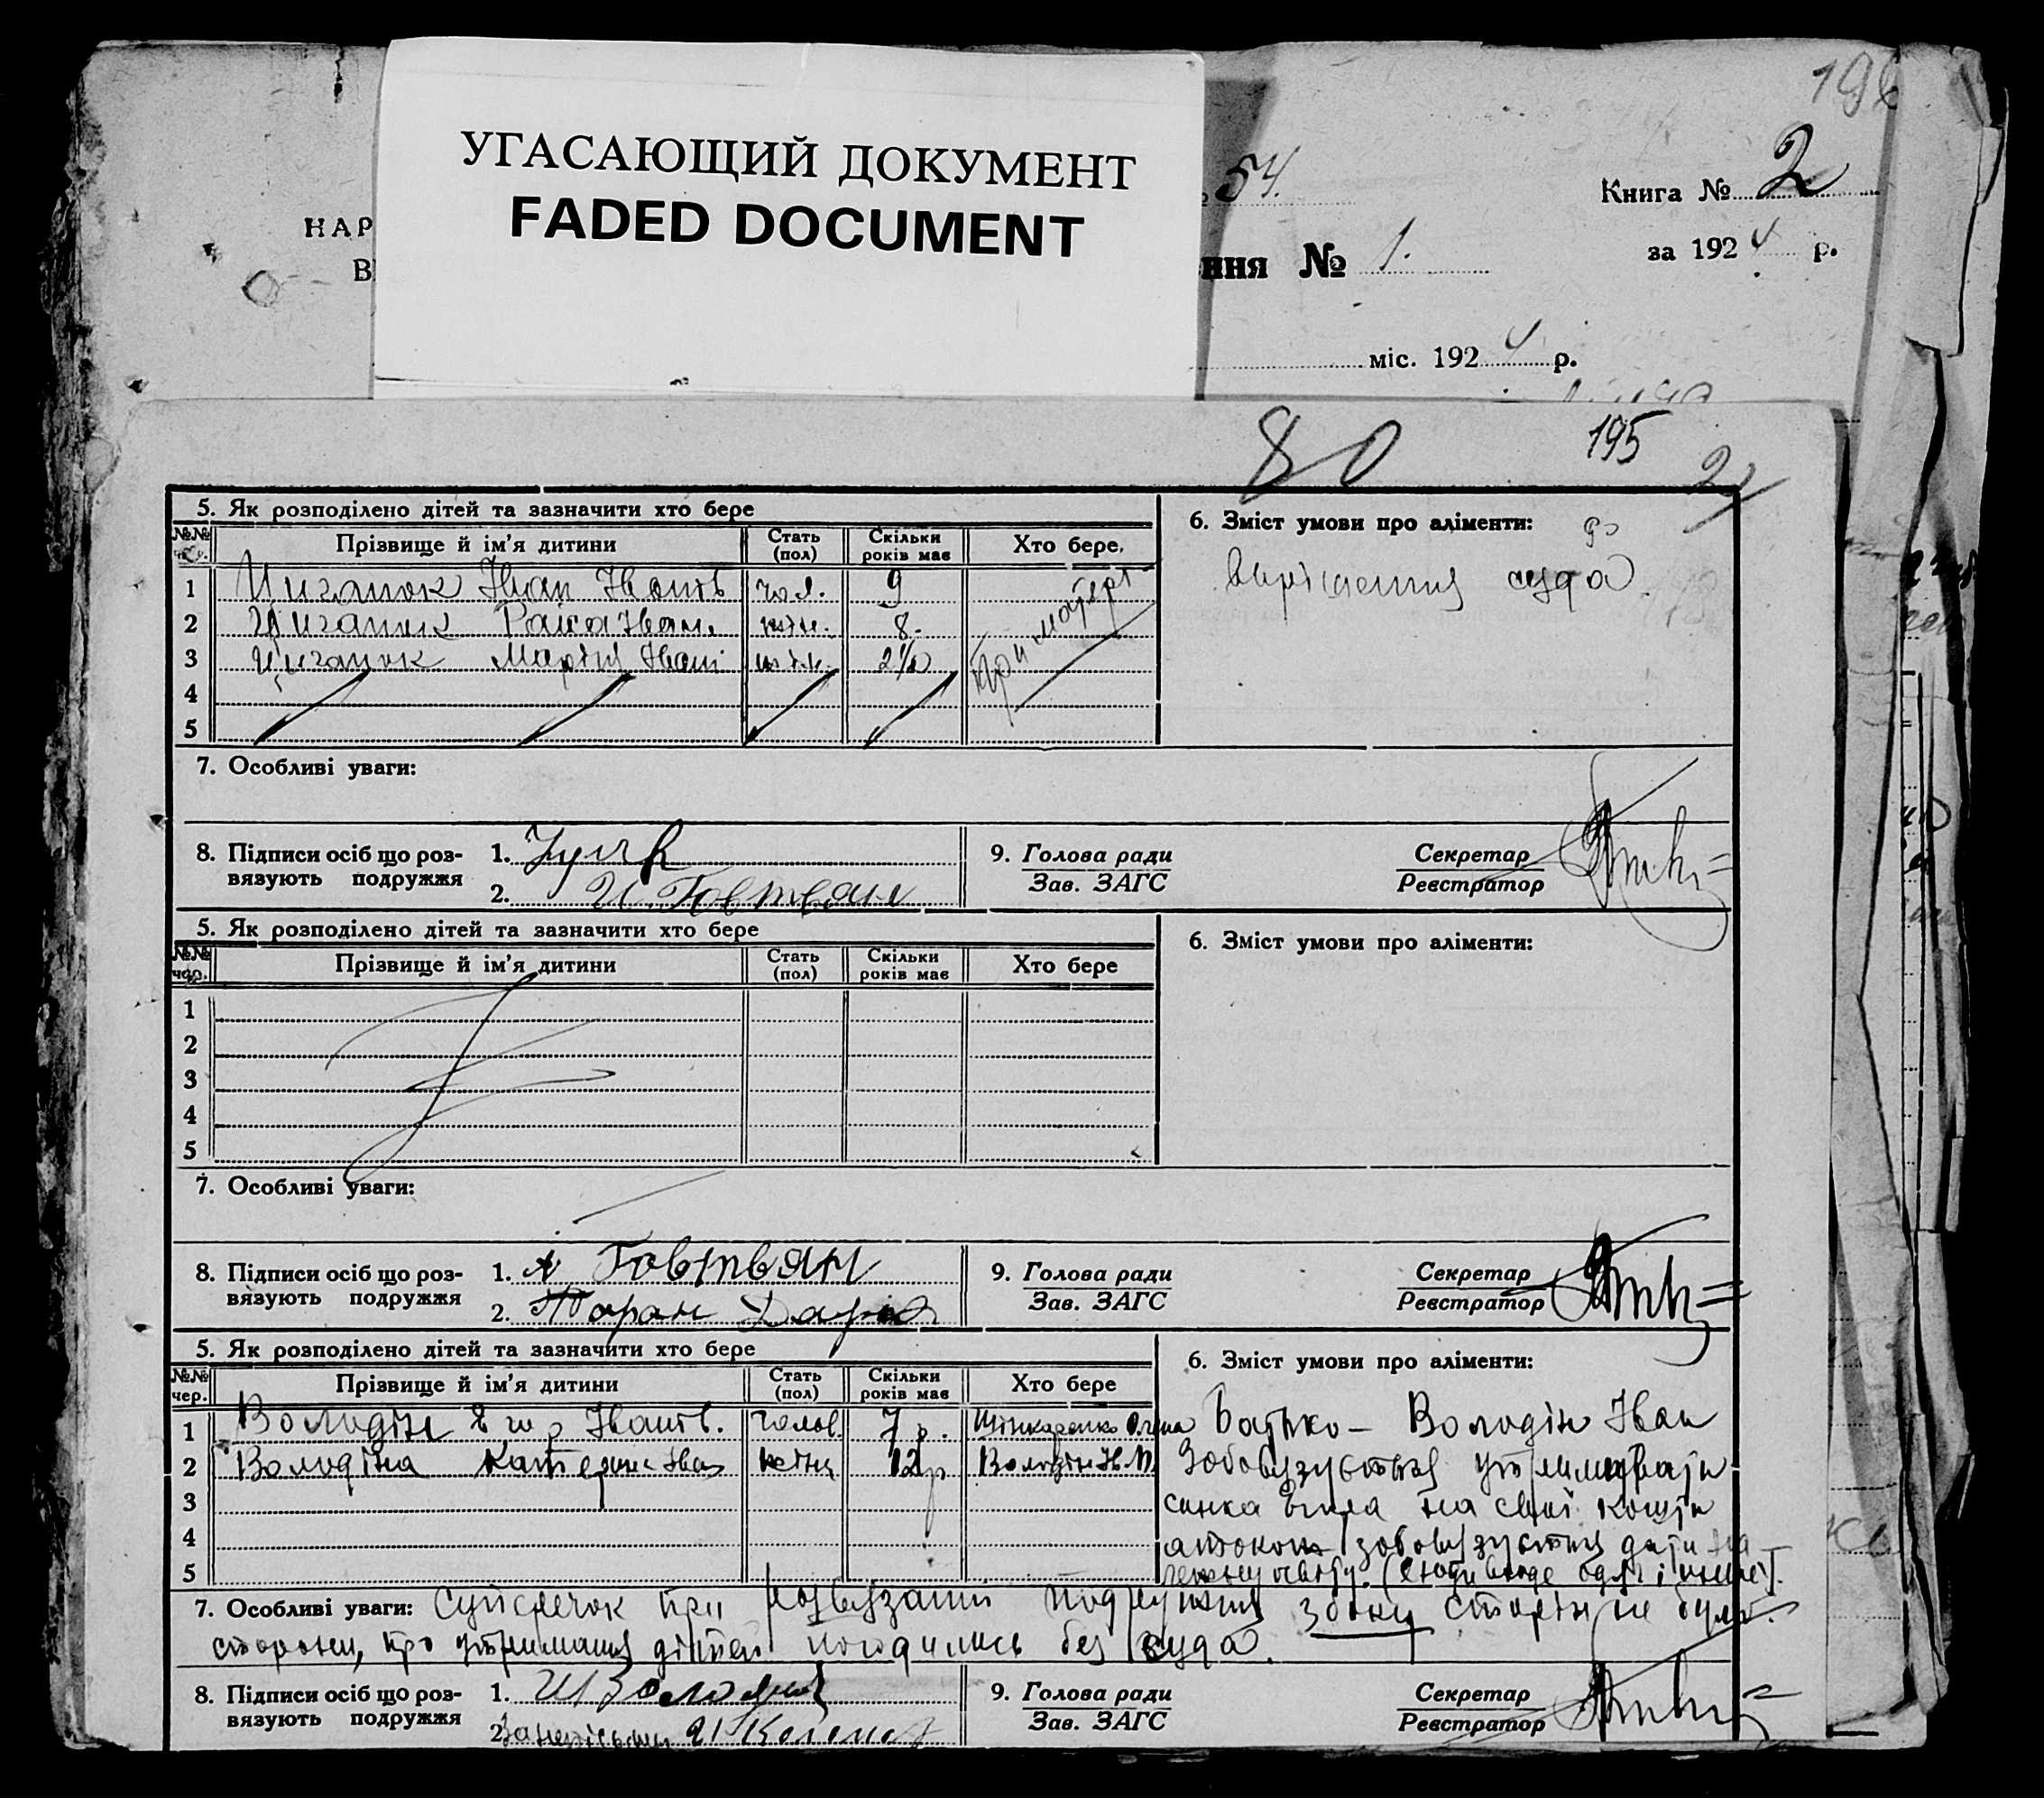 196
УГАСАЮЩИЙ ДОКУМЕНТ
FADED DOCUMENT
54.
Книга № 2
НАР
ння № 1.
за 1924 р.
В
міс. 1924 р.
80
195
2
5. Як розподілено дітей та зазначити хто бере
6. Зміст умови про аліменти: до
№№ Прізвище й ім'я дитини Стать (пол) Скільки років має Хто бере.
вирішення суда.
1 Циганок Іван Іванів чол. 9 При матері
2 Циганок Раїса Іван. жін. 8.
3 Циганок Марія Івані жін. 2½
4
5
7. Особливі уваги:
8. Підписи осіб що роз-вязують подружжя
1.
2. И. Говтвян
9. Голова ради
Зав. ЗАГС
Секретар
Реєстратор
5. Як розподілено дітей та зазначити хто бере
6. Зміст умови про аліменти:
№№ чер. Прізвище й ім'я дитини Стать (пол) Скільки років має Хто бере
1
2
3
4
5
7. Особливі уваги:
8. Підписи осіб що роз-вязують подружжя
1. Говтвян
2. Таран Дарія
9. Голова ради
Зав. ЗАГС
Секретар
Реєстратор
5. Як розподілено дітей та зазначити хто бере
6. Зміст умови про аліменти:
№№ чер. Прізвище й ім'я дитини Стать (пол) Скільки років має Хто бере
1 Володін Іванів. чолов. 7 р. Шинкаренко
2 Володіна Катерина Іван жіноч 12 р Володін Ів.
3
4
5
Батько – Володін Іван
Зобовязується утримувати
синка на свої кошти
також зобовязується дати на-
лежну освіту.
7. Особливі уваги: Суперечок при розвязанні подружжя з боку сторін не було.
сторони, про утримання дітей погодились без суда.
8. Підписи осіб що роз-вязують подружжя
1. И Володин
2.
9. Голова ради
Зав. ЗАГС
Секретар
Реєстратор